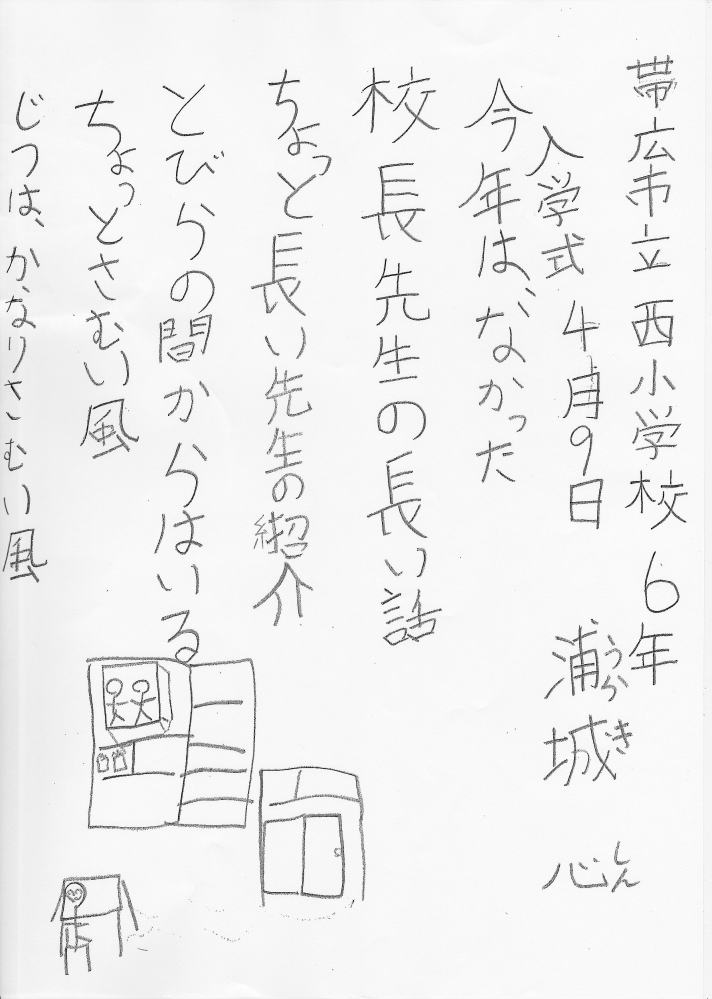 帯広市立西小学校 6年
入学式 4月9日 浦城 心
うらき しん
今年は、なかった
校長先生の長い話
ちょっと長い先生の紹介
とびらの間からはいる
ちょっとさむい風
じつは、かなりさむい風